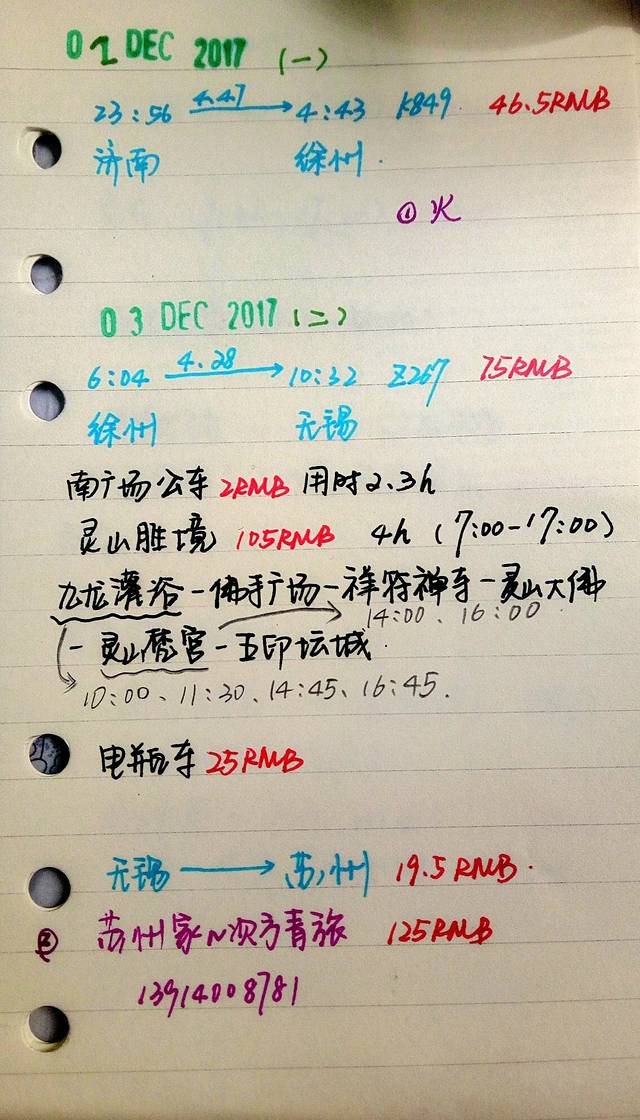 02 DEC 2017 (一)
23:56 4.47 4:43 K849 46.5RMB
济南 徐州.
① 火
03 DEC 2017 (二)
6:04 4.28 10:32 Z267 75RMB
徐州 无锡
南广场公车 2RMB 用时2.3h
灵山胜境 105RMB 4h (7:00-17:00)
九龙灌浴-佛手广场-祥符禅寺-灵山大佛
14:00、16:00
-灵山梵宫-五印坛城.
10:00、11:30、14:45、16:45.
电瓶车 25RMB
无锡 苏州 19.5RMB.
② 苏州家N次方青旅 125RMB
13914008781